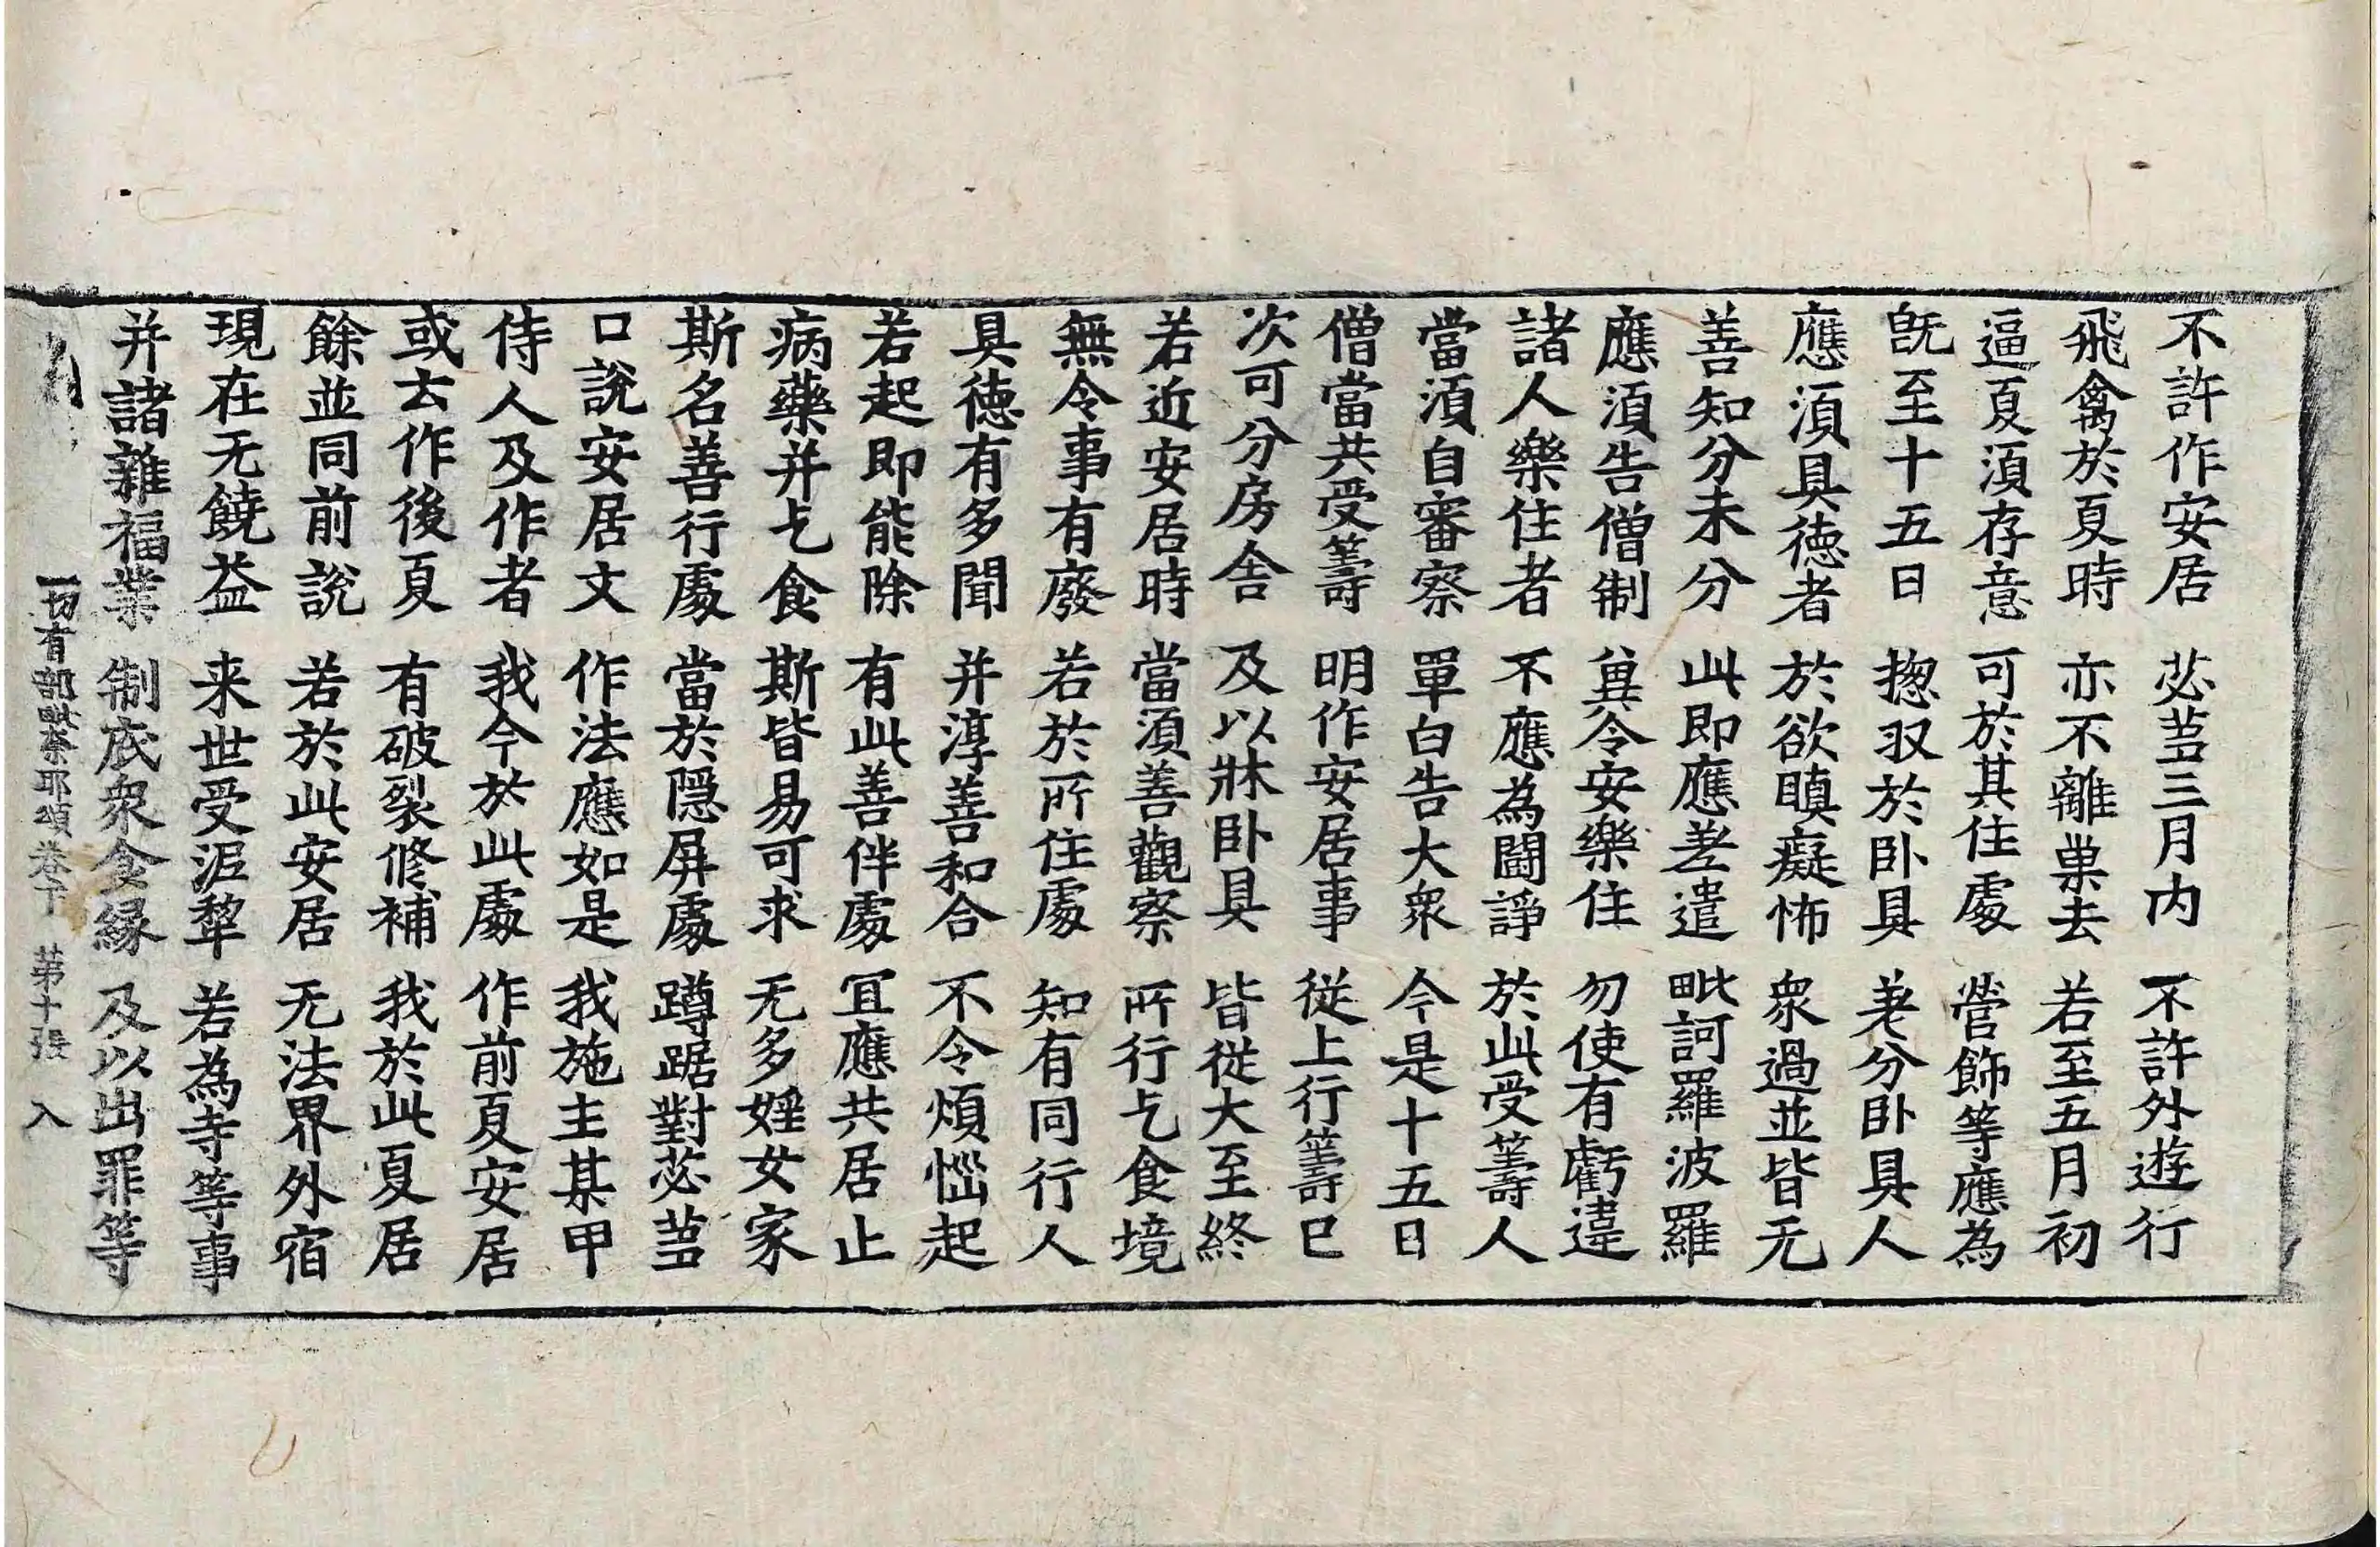 不許作安居 苾蒭三月内 不許外遊行
飛禽於夏時 亦不離巢去 若至五月初
逼夏湏存意 可於其住處 營飾等應為
旣至十五日 揔収於卧具 差分卧具人
應湏具德者 於欲瞋癡怖 衆過並皆无
善知分未分 此即應差遣 毗訶羅波羅
應湏告僧制 兾令安樂住 勿使有虧違
諸人樂住者 不應為鬪諍 於此受籌人
當湏自審察 單白告大衆 今是十五日
僧當共受籌 明作安居事 從上行籌已
次可分房舍 及以牀卧具 皆從大至終
若近安居時 當湏善觀察 所行乞食境
無令事有廢 若於所住處 知有同行人
具德有多聞 并淳善和合 不令煩惱起
若起即能除 有此善伴處 冝應共居止
病藥并乞食 斯皆易可求 无多婬女家
斯名善行處 當於隱屏處 蹲踞對苾蒭
口說安居文 作法應如是 我施主某甲
侍人及作者 我今於此處 作前夏安居
或去作後夏 有破裂修補 我於此夏居
餘並同前說 若於此安居 无法界外宿
現在无饒益 来世受泥犂 若為寺等事
并諸雜福業 制底衆食緣 及以出罪等
一切有部毗奈耶頌卷下 第十張 入